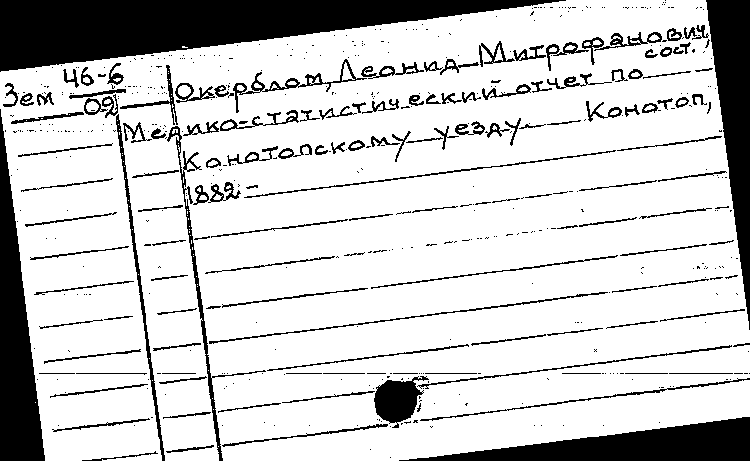 Зем 46-6
02
Окерблом, Леонид Митрофанович,
сост.
Медико-статистический отчет по
Конотопскому уезду. Конотоп,
1882-